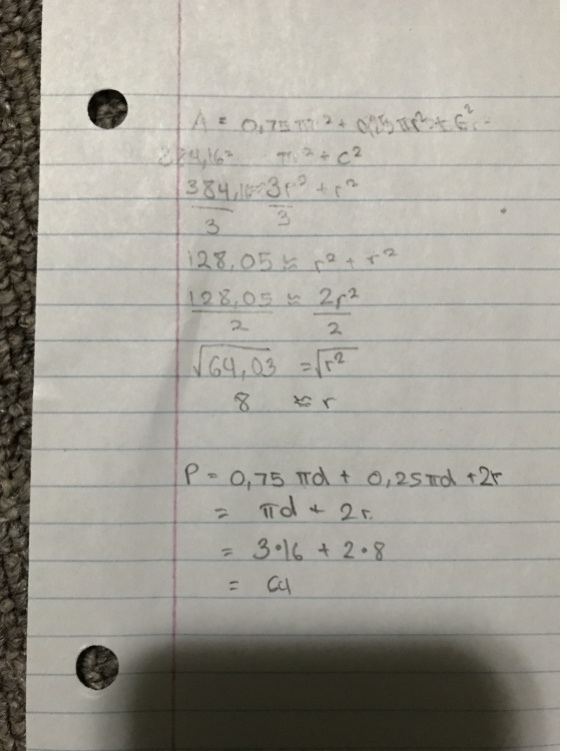 A = 0,75πr² + 0,25πr² + r²
πr² + r²
384,16 ≈ 3r² + r²
3 3
128,05 ≈ r² + r²
128,05 ≈ 2r²
2 2
√64,03 = √r²
8 ≈ r
P = 0,75 πd + 0,25πd + 2r
= πd + 2r
= 3•16 + 2•8
= 64